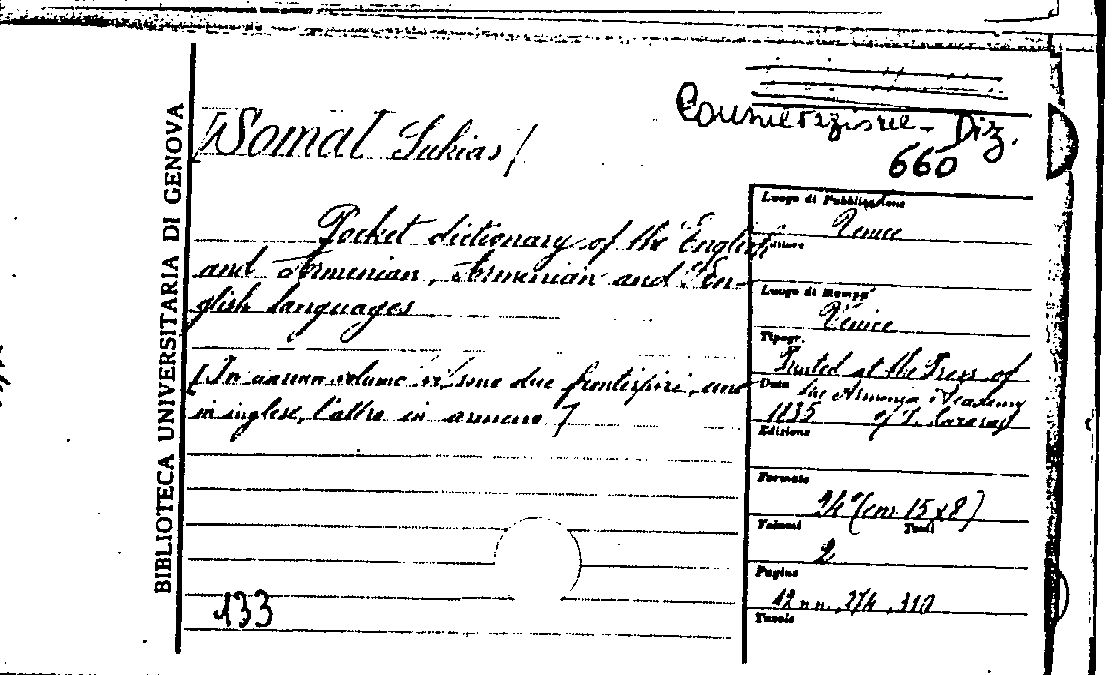 BIBLIOTECA UNIVERSITARIA DI GENOVA
[Somal Sukias]
Diz.
660
Pocket dictionary of the English
and Armenian, Armenian and En-
glish languages
[In volume vi sono due frontespizi, uno
in inglese, l'altro in armeno]
133
Luogo di Pubblicazione
Venice
Editore
Luogo di Stampa
Venice
Tipogr.
Printed at the Press of
Data the Academy
1835 of S. Lazarus
Edizione
Formato
(cm. 15x8)
Volumi Tomi
2
Pagine
12 nn., 274, 310
Tavole